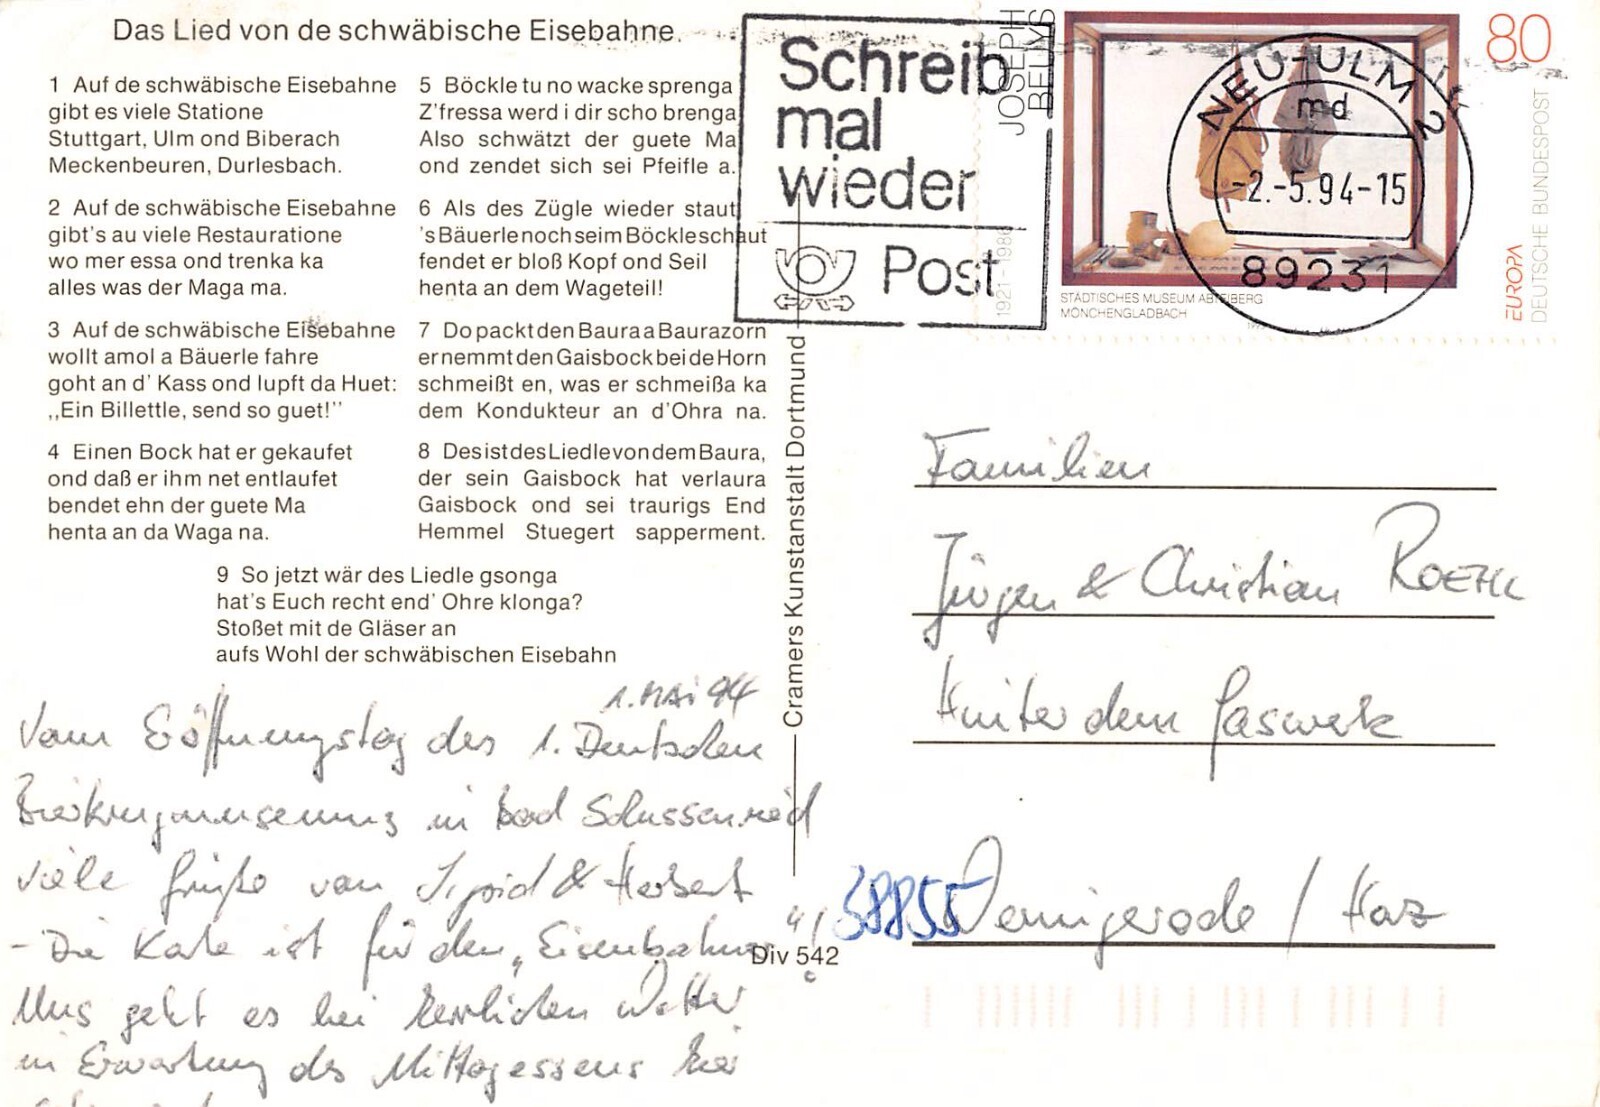 Das Lied von de schwäbische Eisebahne.
1 Auf de schwäbische Eisebahne
gibt es viele Statione
Stuttgart, Ulm ond Biberach
Meckenbeuren, Durlesbach.
2 Auf de schwäbische Eisebahne
gibt's au viele Restauratione
wo mer essa ond trenka ka
alles was der Maga ma.
3 Auf de schwäbische Eisebahne
wollt amol a Bäuerle fahre
goht an d' Kass ond lupft da Huet:
„Ein Billettle, send so guet!"
4 Einen Bock hat er gekaufet
ond daß er ihm net entlaufet
bendet ehn der guete Ma
henta an da Waga na.
5 Böckle tu no wacke sprenga
Z'fressa werd i dir scho brenga
Also schwätzt der guete Ma
ond zendet sich sei Pfeifle a.
6 Als des Zügle wieder staut
's Bäuerle noch seim Böckle schaut
fendet er bloß Kopf ond Seil
henta an dem Wageteil!
7 Do packt den Baura a Baurazorn
er nemmt den Gaisbock bei de Horn
schmeißt en, was er schmeißa ka
dem Kondukteur an d'Ohra na.
8 Des ist des Liedle von dem Baura,
der sein Gaisbock hat verlaura
Gaisbock ond sei traurigs End
Hemmel Stuegert sapperment.
9 So jetzt wär des Liedle gsonga
hat's Euch recht end' Ohre klonga?
Stoßet mit de Gläser an
aufs Wohl der schwäbischen Eisebahn
1. MAI 94
Vom Eröffnungstag des 1. Deutschen
Bierkrugmuseums in Bad Schussenried
viele Grüße von Sigrid & Herbert
- Die Karte ist für den „Eisenbahner"
Uns geht es bei herrlichem Wetter
in Erwartung des Mittagessens hier
Cramers Kunstanstalt Dortmund
Div 542
Schreib
mal
wieder
Post
JOSEPH
BEUYS
1921-1986
80
DEUTSCHE BUNDESPOST
EUROPA
STÄDTISCHES MUSEUM ABTEIBERG
MÖNCHENGLADBACH
NEU-ULM 2
md
-2.-5.94-15
89231
Familien
Jürgen & Christian
Hinter dem Gaswerk
38855 Wernigerode / Harz